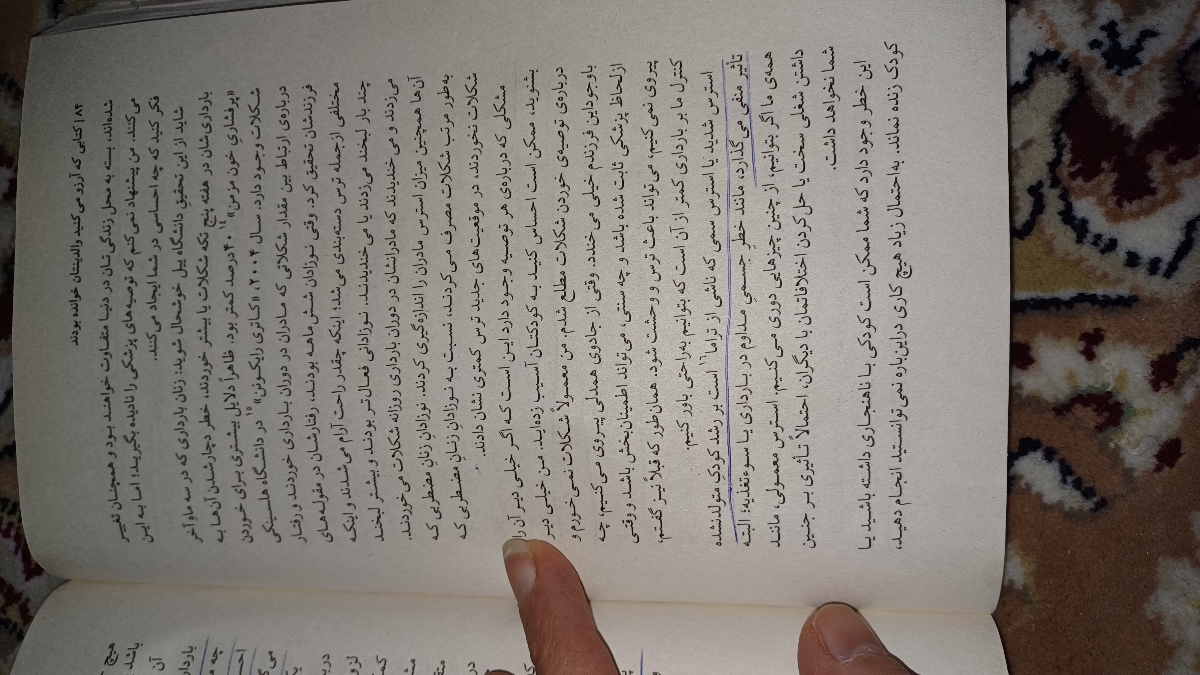 ۸۴ | کتابی که آرزو می‌کنید والدینتان خوانده بودند
شده‌اند، بسته به محل زندگی‌تان در دنیا متفاوت خواهند بود و همچنان تغییر
می‌کنند. من پیشنهاد نمی‌کنم که توصیه‌های پزشکی را نادیده بگیرید؛ اما به این
فکر کنید که چه احساسی در شما ایجاد می‌کنند.
شاید از این تحقیق دانشگاه ییل خوشحال شوید: زنان بارداری که در سه ماه آخر
بارداری‌شان در هفته پنج تکه شکلات یا بیشتر خوردند، خطر دچارشدن آن‌ها به
«پرفشاریِ خون مزمن»۱۴ ۴۰ درصد کمتر بود. ظاهراً دلایل بیشتری برای خوردن
شکلات وجود دارد. سال ۲۰۰۴، «کاتری رایکونن»۱۵ در دانشگاه هلسینکی
درباره‌ی ارتباط بین مقدار شکلاتی که مادران در دوران بارداری خوردند و رفتار
فرزندشان تحقیق کرد. وقتی نوزادان شش‌ماهه بودند، رفتارشان در مقوله‌های
مختلفی ازجمله ترس دسته‌بندی می‌شد؛ اینکه چقدر راحت آرام می‌شدند و اینکه
چند بار لبخند می‌زدند یا می‌خندیدند. نوزادانی فعال‌تر بودند و بیشتر لبخند
می‌زدند و می‌خندیدند که مادرانشان در دوران بارداری روزانه شکلات می‌خوردند.
آن‌ها همچنین میزان استرس مادران را اندازه‌گیری کردند. نوزادانِ زنان مضطربی که
به‌طور مرتب شکلات مصرف می‌کردند، نسبت به نوزادانِ زنان مضطربی که
شکلات نخوردند، در موقعیت‌های جدید ترس کمتری نشان دادند.
مشکلی که درباره‌ی هر توصیه وجود دارد این است که اگر خیلی دیر آن را
بشنوید، ممکن است احساس کنید به کودکتان آسیب زده‌اید. من خیلی دیر
درباره‌ی توصیه‌ی خوردن شکلات مطلع شدم. من معمولاً شکلات نمی‌خورم و
باوجوداین فرزندم خیلی می‌خندد. وقتی از جادوی همدلی پیروی می‌کنیم، چه
ازلحاظ پزشکی ثابت شده باشد و چه سنتی، می‌تواند اطمینان‌بخش باشد و وقتی
پیروی نمی‌کنیم، می‌تواند باعث ترس و وحشت شود. همان‌طور که قبلاً نیز گفتم،
کنترل ما بر بارداری کمتر از آن است که بتوانیم به‌راحتی باور کنیم.
استرس شدید یا استرس سمی که ناشی از تراما۱۶ است بر رشد کودکِ متولدنشده
تأثیر منفی می‌گذارد، مانند خطر جسمیِ مداوم در بارداری یا سوءتغذیه؛ البته
همه‌ی ما اگر بتوانیم، از چنین چیزهایی دوری می‌کنیم. استرس معمولی، مانند
داشتن شغلی سخت یا حل‌کردن اختلافاتمان با دیگران، احتمالاً تأثیری بر جنین
شما نخواهد داشت.
این خطر وجود دارد که شما ممکن است کودکی با ناهنجاری داشته باشید یا
کودک زنده نماند. به احتمال زیاد هیچ کاری دراین‌باره نمی‌توانستید انجام دهید،
هیچ
باشد
آن
باردار
چه
احس
می‌گ